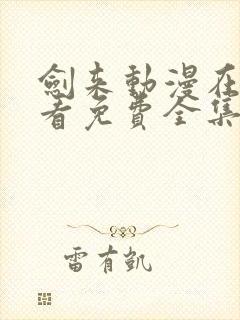 劍来動漫在
看免費全集
雷有凱